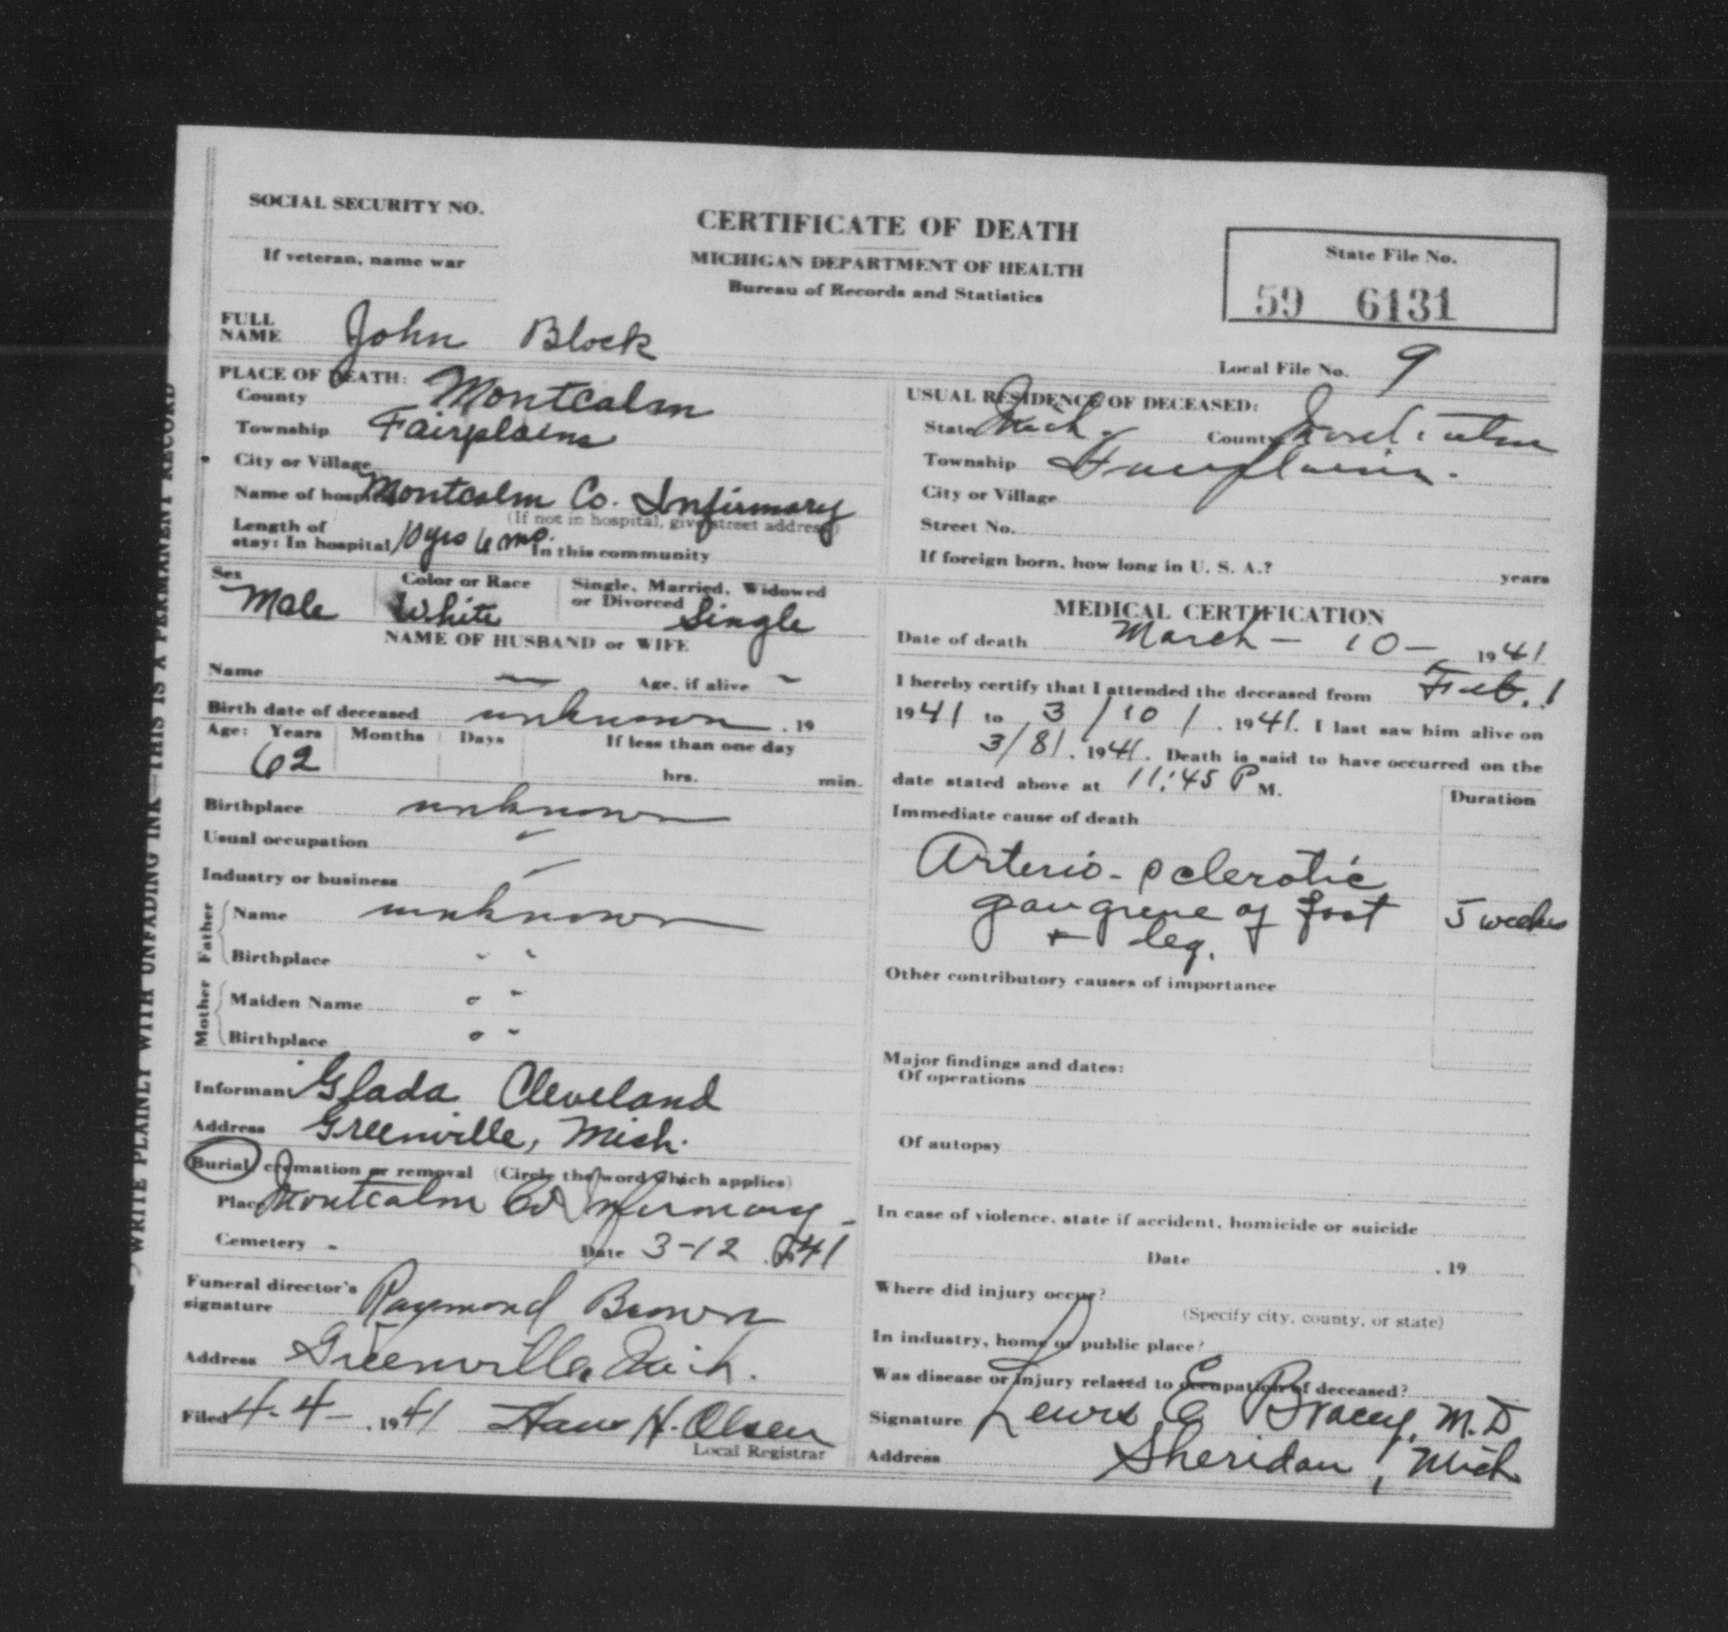 SOCIAL SECURITY NO.
If veteran, name war
CERTIFICATE OF DEATH
MICHIGAN DEPARTMENT OF HEALTH
Bureau of Records and Statistics
State File No.
59 6131
Local File No. 9
FULL NAME John Block
PLACE OF DEATH:
County Montcalm
Township Fairplains
City or Village
Name of hospital Montcalm Co. Infirmary
(If not in hospital, give street address)
Length of stay: In hospital 10 yrs 6 mo. In this community
USUAL RESIDENCE OF DECEASED:
State Mich. County Montcalm
Township Fairplains.
City or Village
Street No.
If foreign born, how long in U. S. A.? years
Sex Male
Color or Race White
Single, Married, Widowed or Divorced Single
NAME OF HUSBAND or WIFE
Name — Age, if alive -
Birth date of deceased unknown , 19
Age: Years Months Days If less than one day
62 hrs. min.
Birthplace unknown
Usual occupation
Industry or business —
Father
Name unknown
Birthplace " "
Mother
Maiden Name " "
Birthplace " "
Informant Glada Cleveland
Address Greenville, Mich.
Burial, cremation or removal (Circle the word which applies)
Place Montcalm Co Infirmary -
Cemetery - Date 3-12 , 1941
Funeral director's signature Raymond Brown
Address Greenville, Mich.
Filed 4-4- , 1941 Hans H. Olsen
Local Registrar
MEDICAL CERTIFICATION
Date of death March - 10 - 1941
I hereby certify that I attended the deceased from Feb. 1
1941 to 3/10/ , 1941. I last saw him alive on
3/8/ , 1941. Death is said to have occurred on the
date stated above at 11:45 P M.
Duration
Immediate cause of death
Arterio-sclerotic
gangrene of foot 5 weeks
+ leg.
Other contributory causes of importance
Major findings and dates:
Of operations
Of autopsy
In case of violence, state if accident, homicide or suicide
Date , 19
Where did injury occur?
(Specify city, county, or state)
In industry, home or public place?
Was disease or injury related to occupation of deceased?
Signature Lewis E Bracey, M.D
Address Sheridan, Mich
WRITE PLAINLY WITH UNFADING INK—THIS IS A PERMANENT RECORD